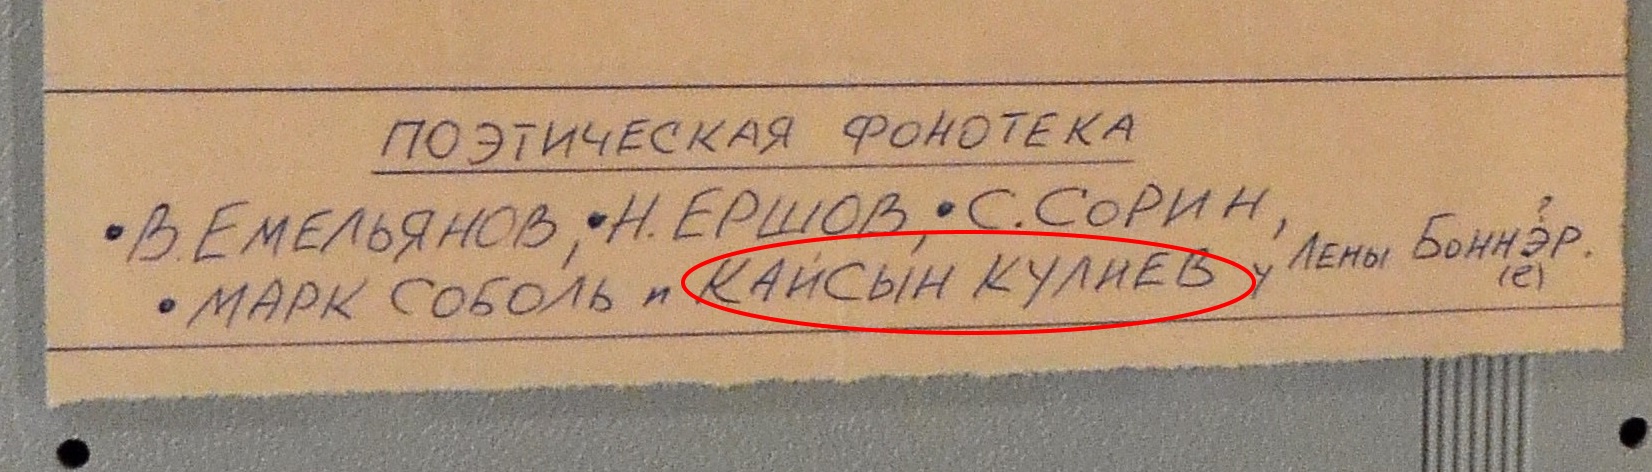 ПОЭТИЧЕСКАЯ ФОНОТЕКА
•В. ЕМЕЛЬЯНОВ, •Н. ЕРШОВ, •С. СОРИН,
•МАРК СОБОЛЬ и КАЙСЫН КУЛИЕВ у Лены Боннэр.
? (е)